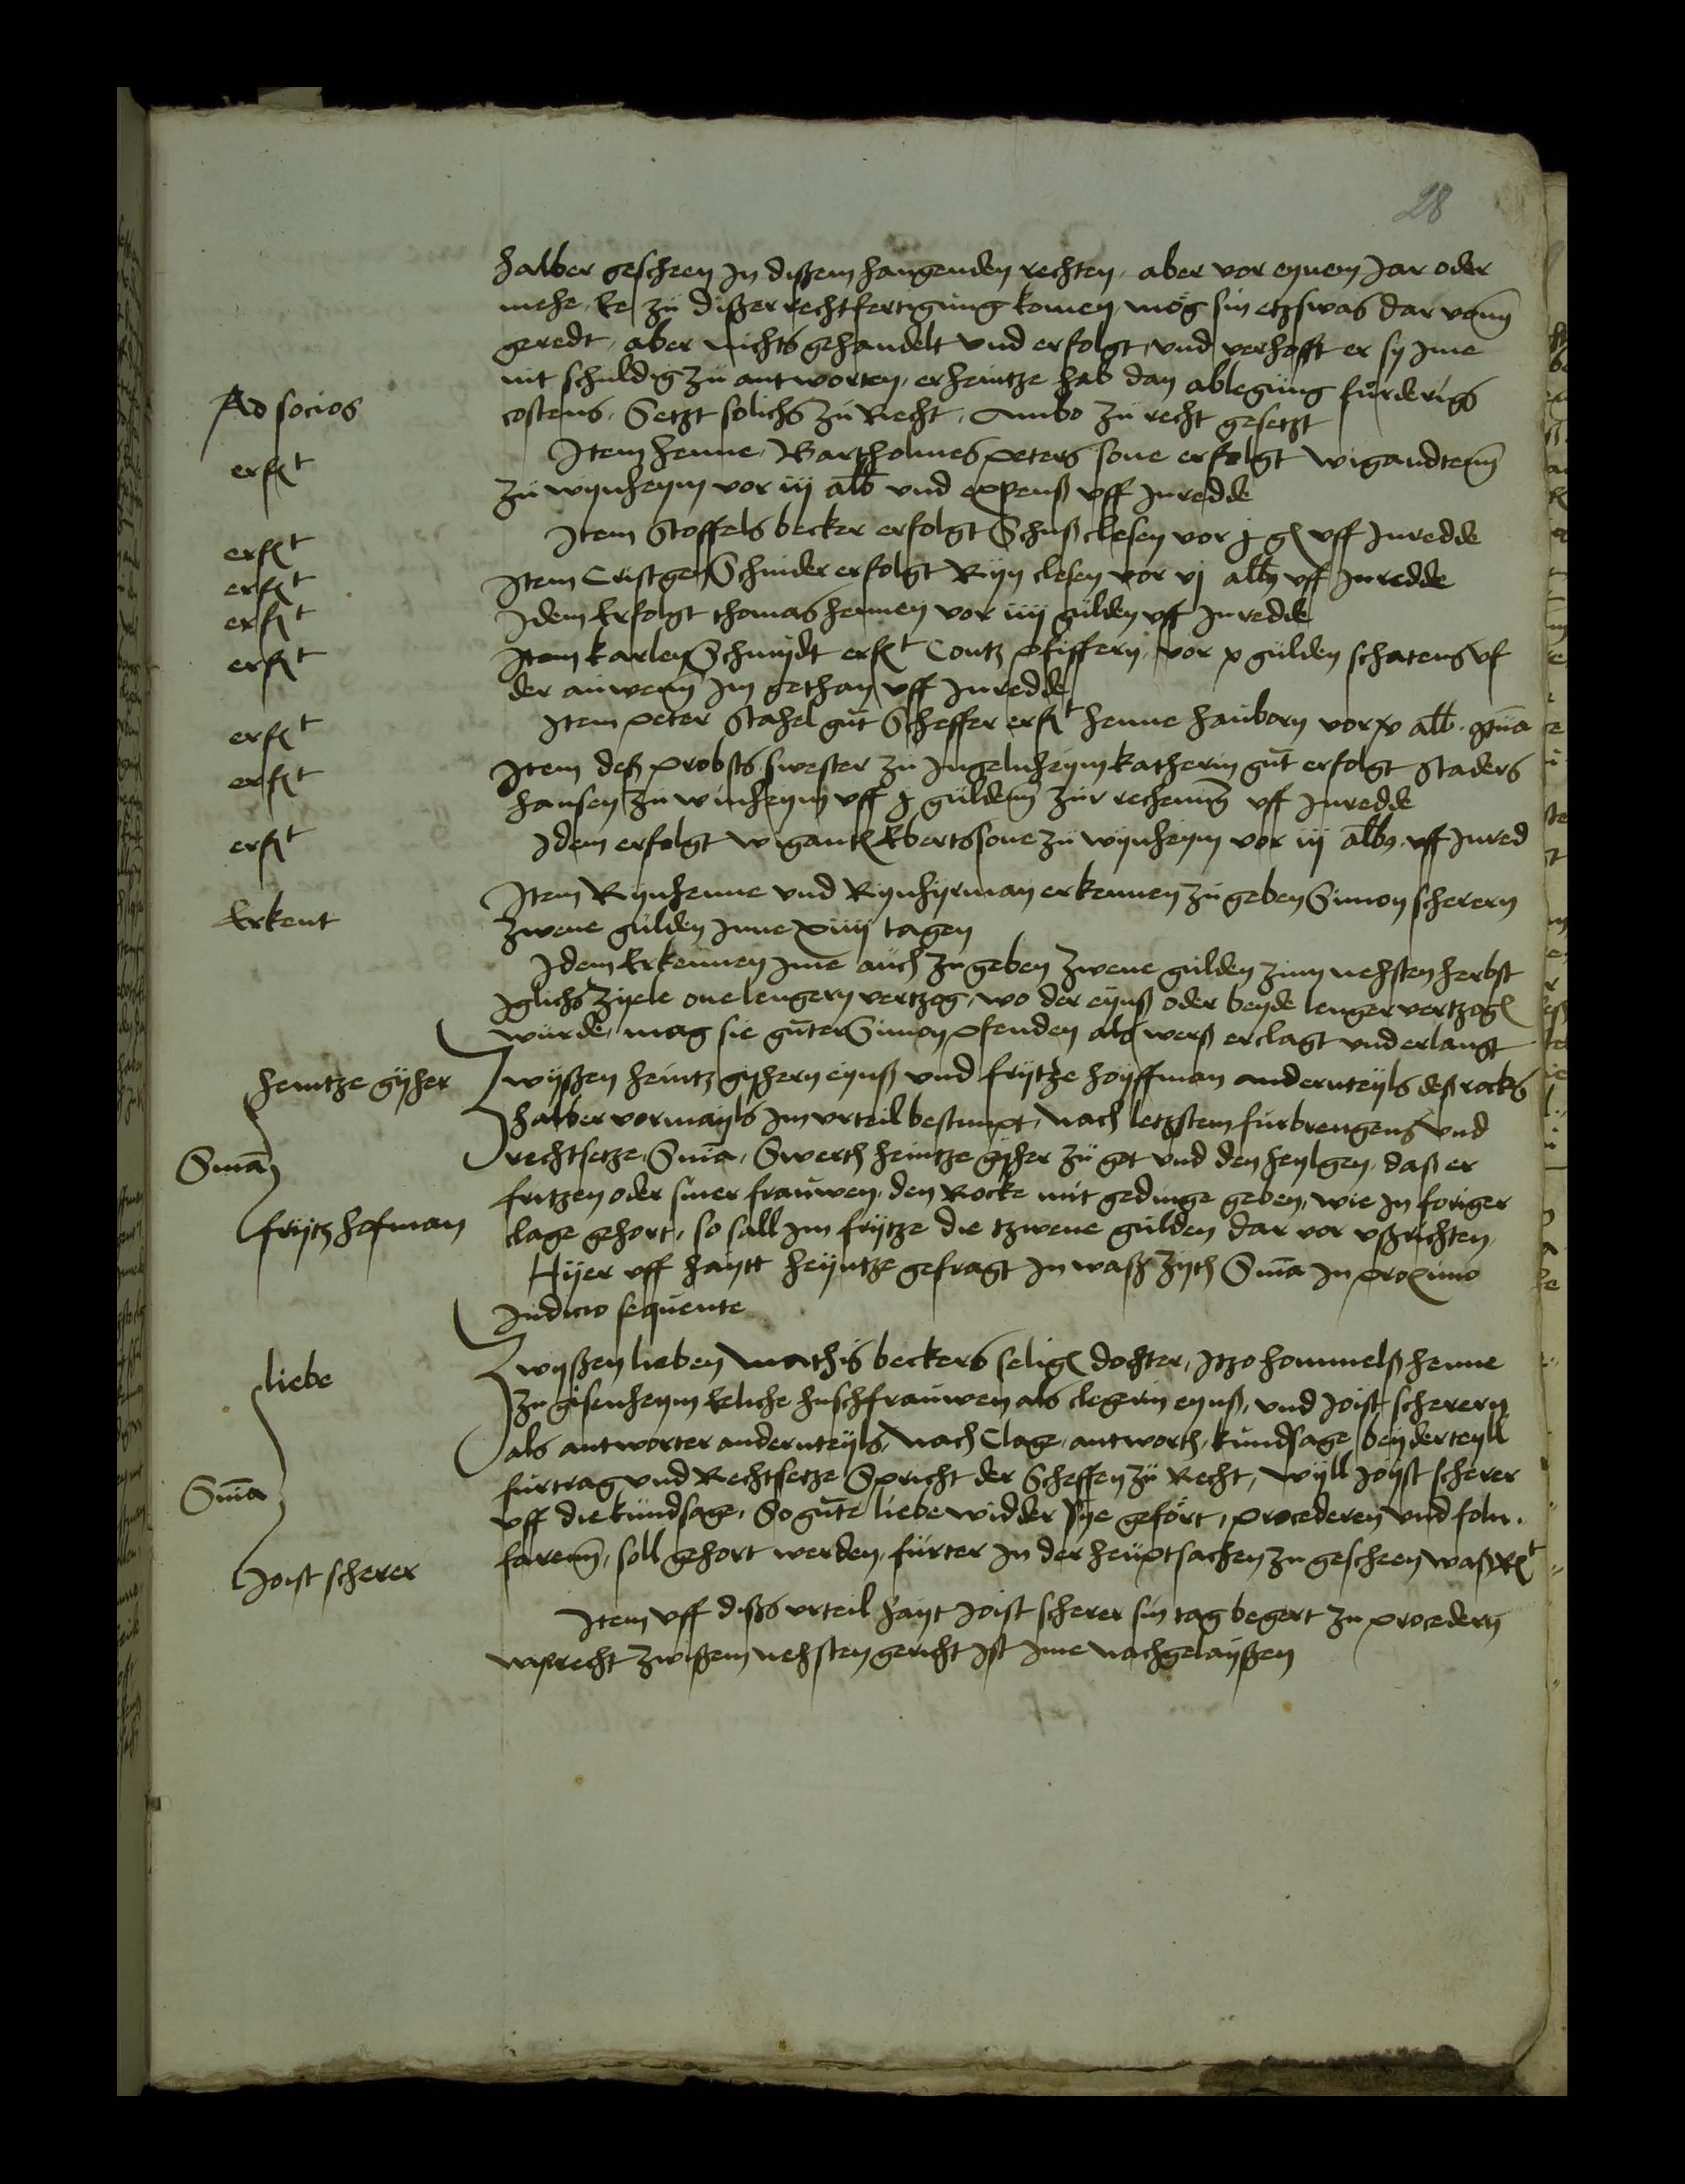 28
halber gescheen in dißem hangenden rechten, aber vor eynem Jar oder
mehe, Ee zu dißer rechtfertigung komen, mog sin etzswas dar vonn
geredt, aber nichts gehandelt vnd erfolgt, vnd verhofft er sij Ime
nit schuldig zu antworten, er heintze hab dan ablegung furderigs
Ad socios
costens, Setzt solichs zu Recht, Ambo zu recht gesetzt
erf t
Item Henne, Bartholmes peters sone erfolgt wigandtenn
zu wynheym vor iij alb vnd expenß vff Inredde
erf t
Item Stoffels becker erfolgt Schuß clesen vor j g vff Inredde
erf t
Item Cristgen Schnider erfolgt Ryn clesen vor vj alb vff Inredde
erf t
Idem Erfolgt thomas hennen vor iiij gulden vff Inredde
erf t
Item karlen Schmydt erf t Contz pfiffern, vor x gulden schatens vf
der anwenn im gethan vff Inredde
erf t
Item peter Stahel gut Scheffer erf t Henne hauborn vor x alb.
erf t
Item deß probsts swester zu Ingelnheym katherin gut erfolgt Staders
hansen zu winheym vff j guldenn zur rechenung vff Inredde
erf t
Idem erfolgt wigant Ebertssone zu wynheym vor iij albs, vff Inred
Erkent
Item Rynhenne vnd Rynhyrman erkennen zu geben Simon scherern
zwene gulden Inne xiiij tagen
Idem Erkennen Ime auch zu geben zwene gulden zum nehsten herbst
Iglichs zijele one lengern vertzog, wo der eynß oder beyde lenger vertzog
wurde, mag sie guter Simon pfenden als werß erclagt vnd erlangt
heintze gyher
Zwyßen heintz gyhern eynß vnd frijtze hoyffman andernteyls deß rocks
halber vormayls im vrteil bestimpt, Nach letzstem furbrengens vnd
Smā
rechtsetze, Smā, Swerth heintze gyher zu got vnd den heylgen, daß er
fritzen oder siner frauwen, den Rocke mit gedinge geben, wie in foriger
frijtz hofman
clage gehort, so sall im frijtze die tzwene gulden dar vor vßrichten,
Hijer vff haytt heyntze gefragt in waß zyth Smā In proximo
Judicio sequente
liebe
Zwyßen lieben Mathis beckers selig dochter, Itzo hommelß henne
zu gisenheym Eeliche hußfrauwen als clegerin eynß, vnd Joist scherern
als antworter andernteyls, Nach Clage, antworth, kundsage beyderteyll
Smā
furtrag vnd Rechtsetze Spricht der Scheffen zu Recht, Wyll Joyst scherer
vff die kundsage, So gute liebe widder sye gefort, procederen vnd foln.
Joist scherer
farenn, soll gehort werden, furter in der heuptsachen zu gescheen waß R t
Item vff dißs vrteil hayt Joist scherer sin tag begert zu procedern
wißrecht zwißem nehsten gericht ist ime nachgelayßen